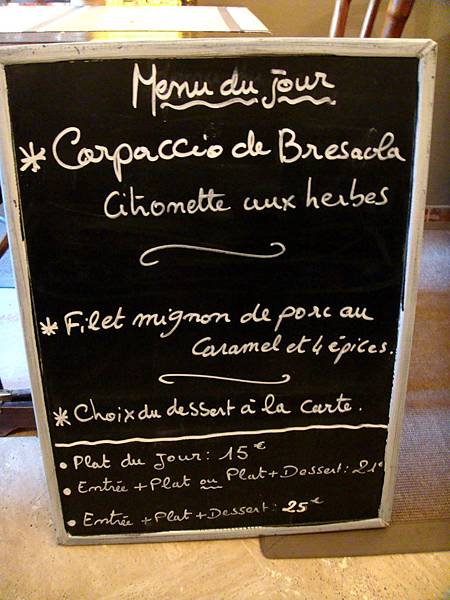 Menu du jour
* Carpaccio de Bresaola
Citronette aux herbes
* Filet mignon de porc au
Caramel et 4 épices.
* Choix du dessert à la carte.
• Plat du jour: 15€
• Entrée + Plat ou Plat + Dessert: 21€
• Entrée + Plat + Dessert: 25€